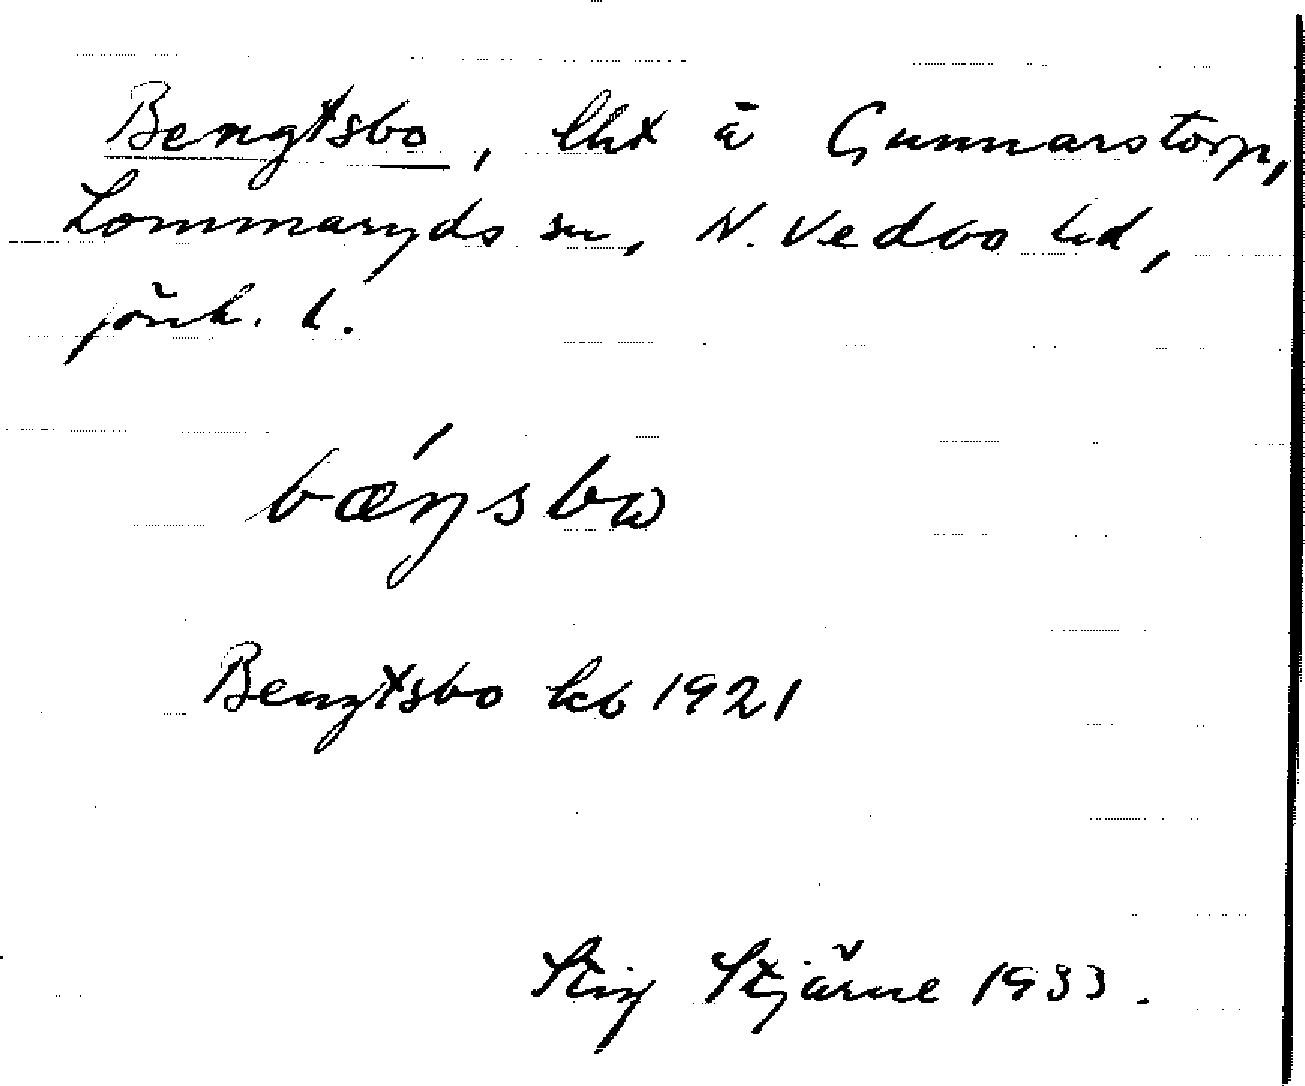 Bengtsbo, lht å Gunnarstorp,
Lommaryds sn, N. Vedbo hd,
jönk. l.
bǽŋsbω
Bengtsbo kb 1921
Stig Stjärne 1933.